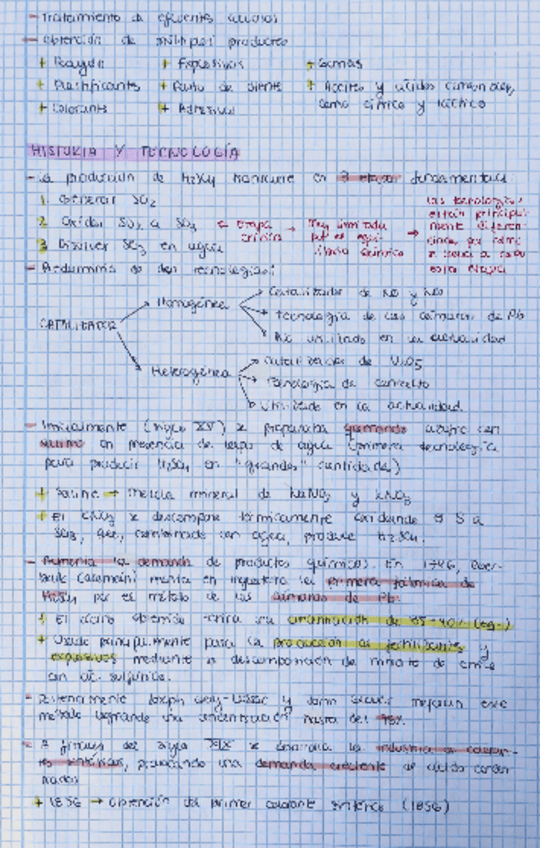 - Tratamiento de efluentes acuosos
- Obtención de múltiples productos
+ Rayón + Explosivos + Gomas
+ Plastificantes + Pasta de dientes + Aceites y ácidos comerciales,
+ Colorante + Adhesivos como cítrico y láctico
HISTORIA Y TECNOLOGÍA
- La producción de H2SO4 transcurre en 3 etapas fundamentales
1. Generar SO2
2. Oxidar SO2 a SO3 ← etapa crítica → Muy limitada por el equilibrio químico → las tecnologías están principalmente diferenciadas por cómo se lleva a cabo esta etapa
3. Disolver SO3 en agua
- Predominio de dos tecnologías:
CATALIZADOR
Homogénea
Catalizador de NO y NO2
Tecnología de las cámaras de Pb
No utilizado en la actualidad
Heterogénea
Catalizador de V2O5
Tecnología de contacto
Utilizado en la actualidad
- Inicialmente (siglo XV) se preparaba quemando azufre con
salitre en presencia de vapor de agua (primera tecnología
para producir H2SO4 en "grandes" cantidades)
+ Salitre → Mezcla mineral de NaNO3 y KNO3
+ El KNO3 se descompone térmicamente oxidando el S a
SO3, que, combinado con agua, produce H2SO4.
- Aumenta la demanda de productos químicos. En 1746,
monta en Inglaterra la primera fábrica de
H2SO4 por el método de las cámaras de Pb.
+ El ácido obtenido tenía una concentración de 35-40%
+ Usado principalmente para la producción de fertilizantes y
explosivos mediante la descomposición de nitrato de
con ác. sulfúrico.
- Posteriormente Joseph Gay-Lussac y John Glover mejoran este
método logrando una concentración hasta del 78%.
- A finales del siglo XIX se desarrolla la industria de coloran-
tes sintéticos, provocando una demanda creciente de ácido concen-
trado
+ 1856 → Obtención del primer colorante sintético (1856)